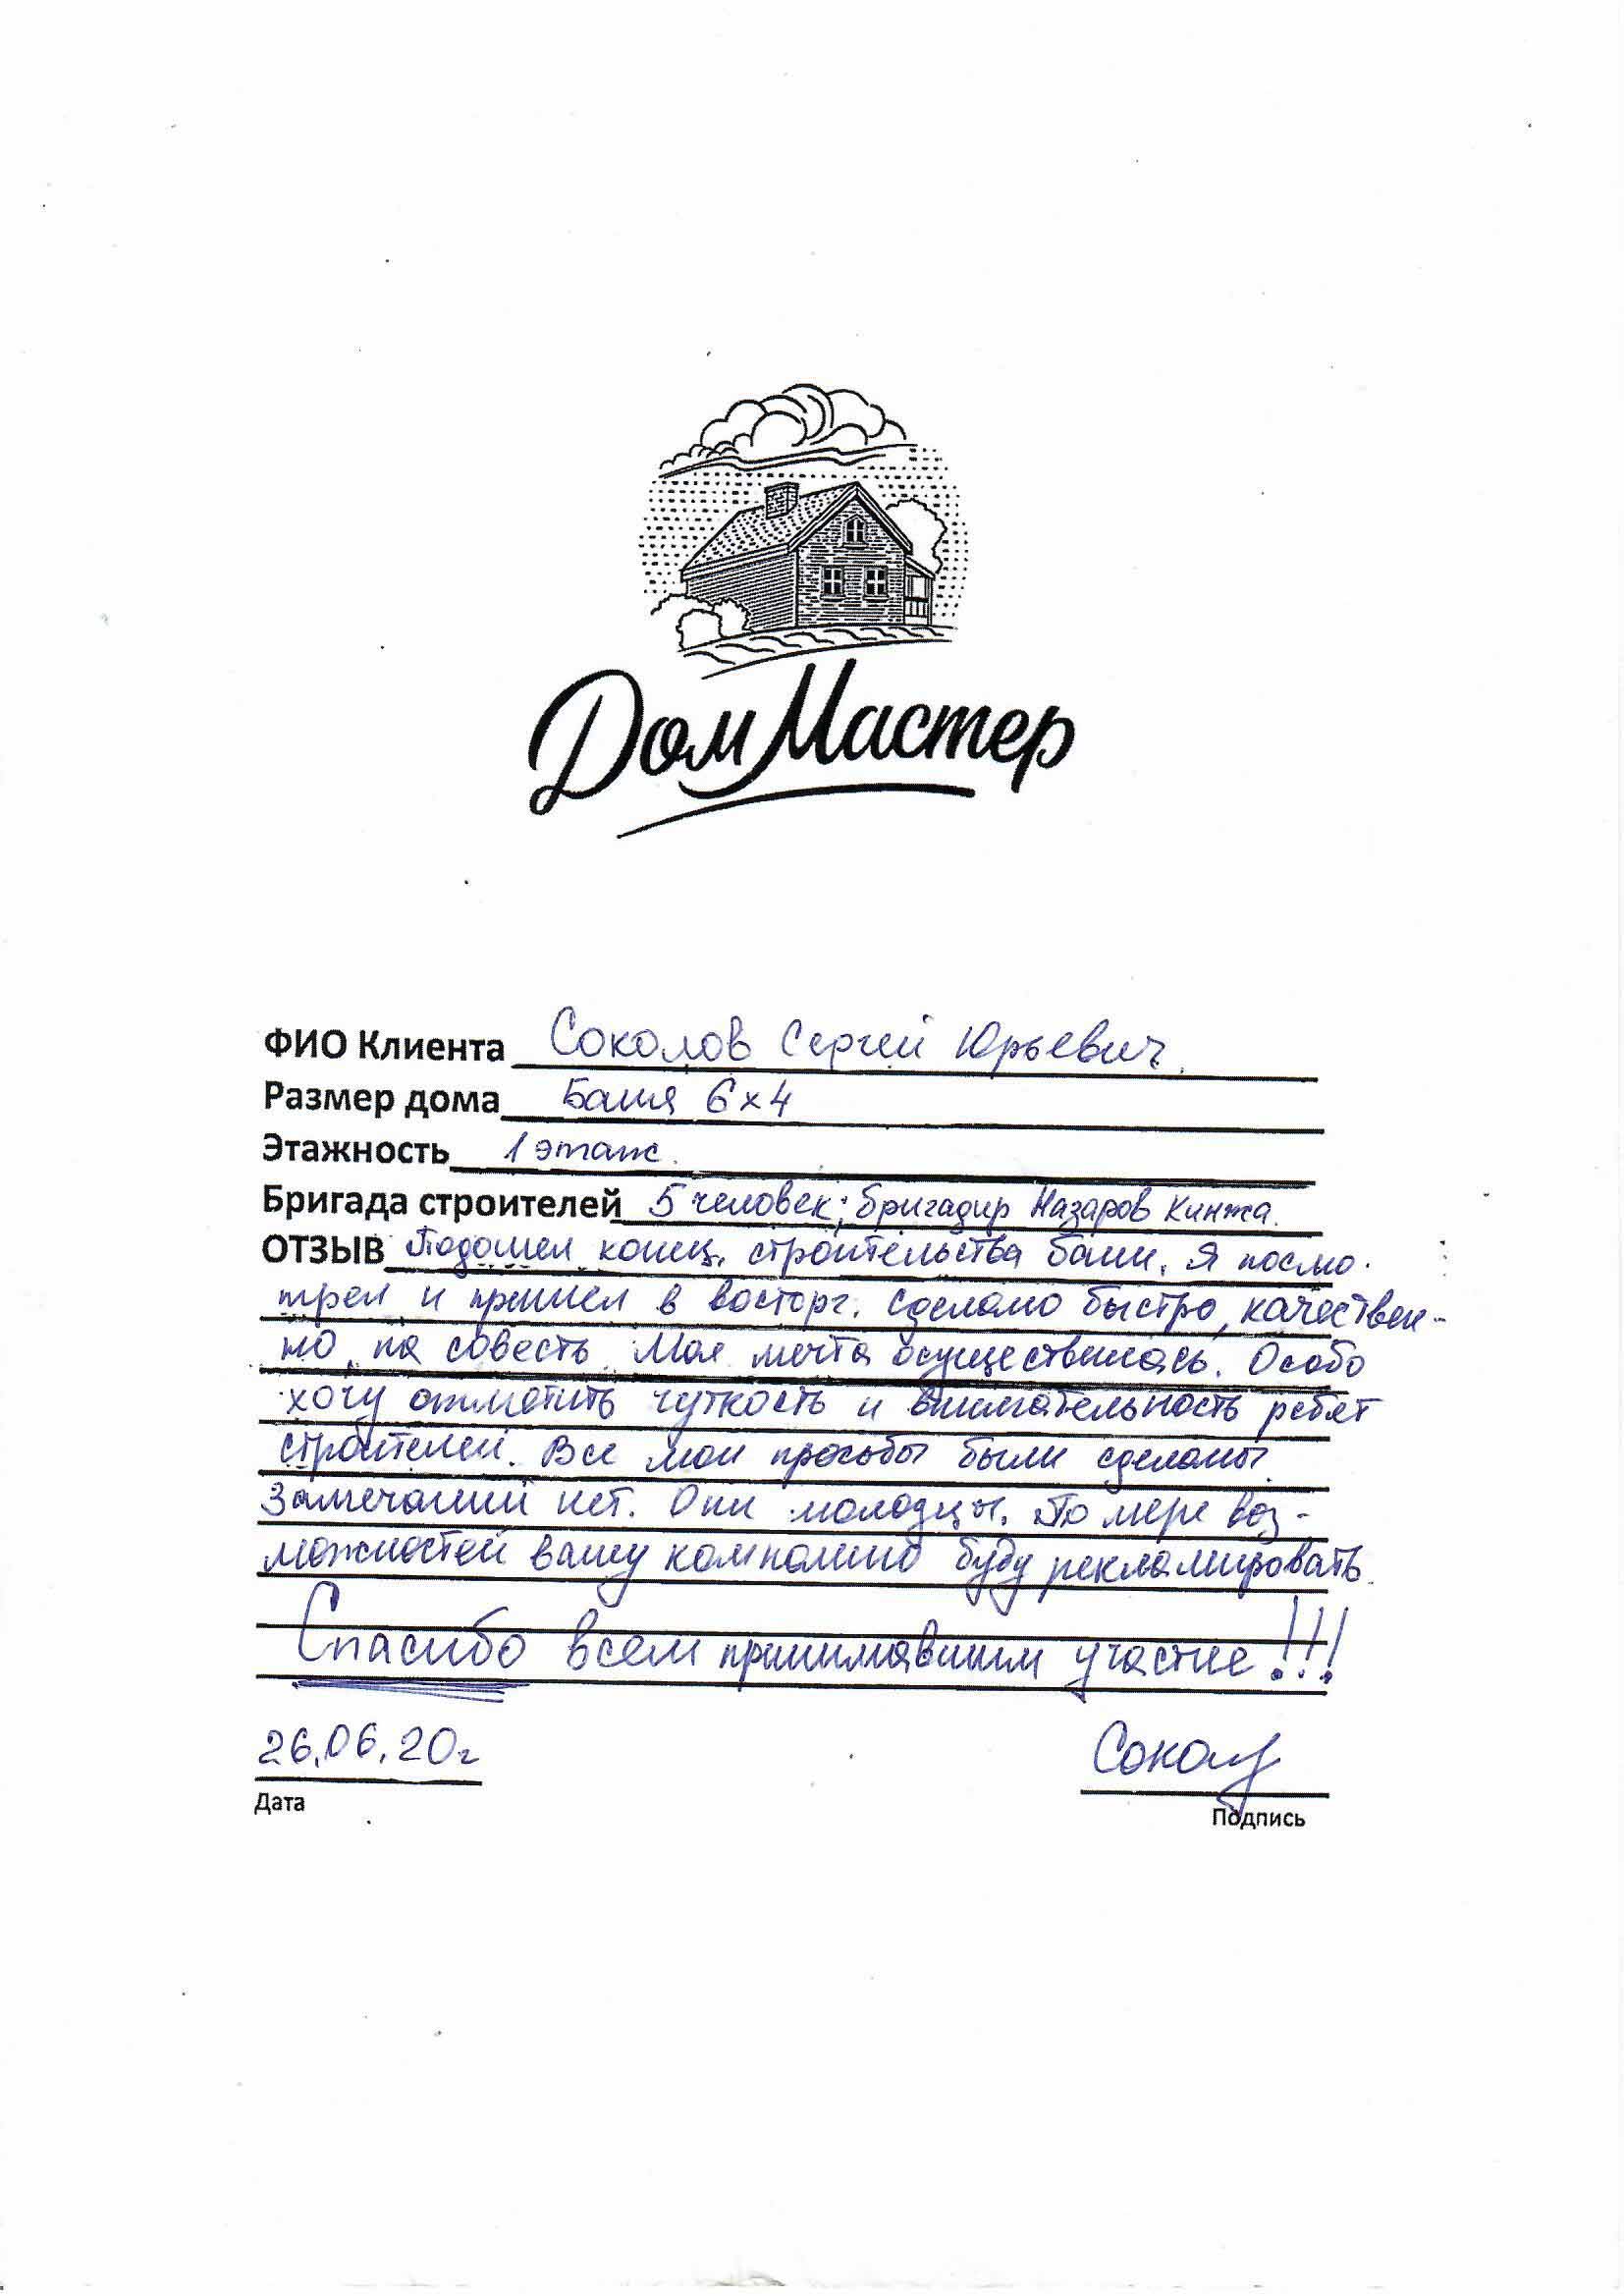 ДомМастер
ФИО Клиента Соколов Сергей Юрьевич.
Размер дома Баня 6х4
Этажность 1 этаж.
Бригада строителей 5 человек; бригадир Назаров Кинжа.
ОТЗЫВ Подошел конец строительства бани. Я посмо-
трел и пришел в восторг. Сделано быстро, качествен-
но, на совесть. Моя мечта осуществилась. Особо
хочу отметить чуткость и внимательность ребят
строителей. Все мои просьбы были сделаны.
Замечаний нет. Они молодцы. По мере воз-
можностей вашу компанию буду рекламировать.
Спасибо всем принимавшим участие!!!
26.06.20г Сокол
Дата Подпись